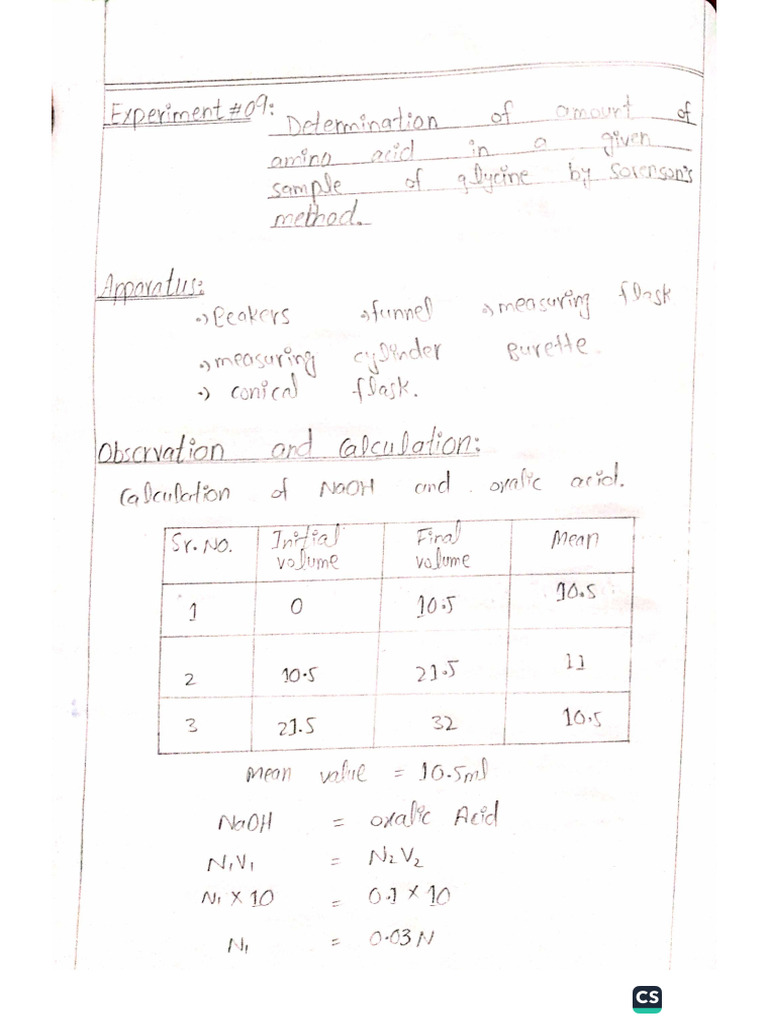 Experiment #09:
Determination of amount of
amino acid in a given
sample of glycine by Sorenson's
method.
Apparatus:
•) Beakers •) funnel •) measuring flask
•) measuring cylinder Burette.
•) conical flask.
Obsrvation and Calculation:
Calculation of NaOH and oxalic acid.
Sr. NO. Initial volume Final volume Mean
1 0 10.5 10.5
2 10.5 21.5 11
3 21.5 32 10.5
Mean value = 10.5ml
NaOH = oxalic Acid
N₁V₁ = N₂V₂
N₁ × 10 = 0.1 × 10
N₁ = 0.03 N
CS